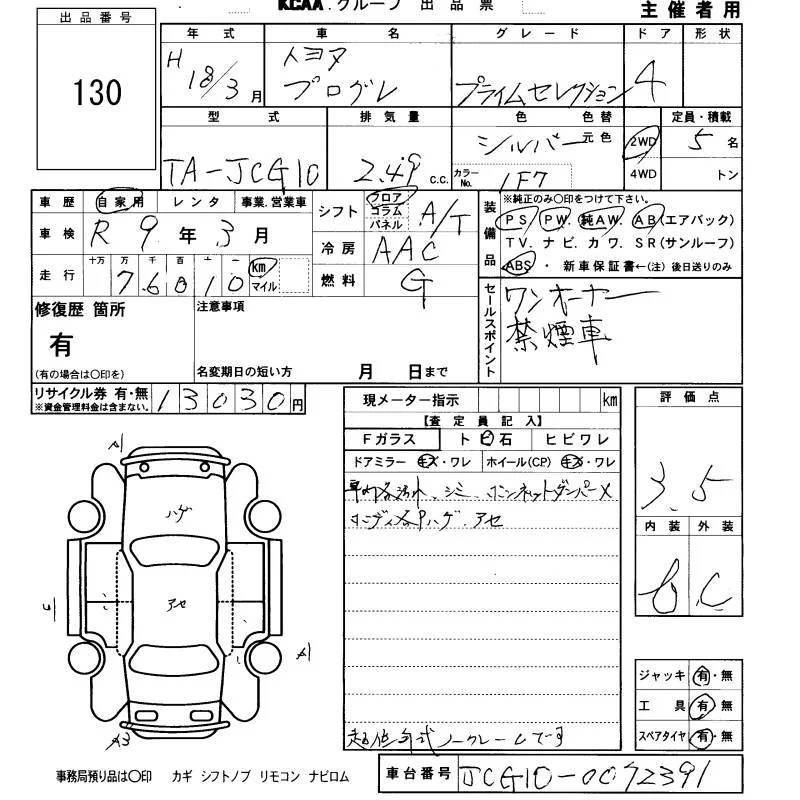 KCAA.グループ 出品票
主催者用
出品番号
130
年式
H 18/3月
車名
トヨタ
プログレ
グレード
プライムセレクション
ドア
4
形状
型式
TA-JCG10
排気量
2.49 c.c.
色 色替
シルバー 元色
カラーNo. 1F7
2WD
4WD
定員・積載
5名
トン
車歴 自家用 レンタ 事業.営業車
車検 R 9年3月
走行 十万 万 千 百 十 一
7 6 0 1 0 km
マイル
シフト フロア コラム パネル A/T
冷房 AAC
燃料 G
装備品
※純正のみ〇印をつけて下さい。
PS PW. 純AW. AB(エアバック)
TV. ナビ. カワ. SR(サンルーフ)
ABS・新車保証書←(注) 後日送りのみ
セールスポイント
ワンオーナー
禁煙車
修復歴 箇所
有
(有の場合は〇印を)
注意事項
名変期日の短い方 月 日まで
リサイクル券 有・無
※資金管理料金は含まない。
13030円
現メーター指示 km
【査定員記入】
Fガラス トビ石 ヒビワレ
ドアミラー キズ・ワレ ホイール(CP) キズ・ワレ
シミ ボンネットダンパー×
ボディ各Pハゲ.アセ
ノークレームです
評価点
3.5
内装 外装
C
A1
ハゲ
アセ
A1
A3
ジャッキ 有・無
工具 有・無
スペアタイヤ 有・無
事務局預り品は〇印 カギ シフトノブ リモコン ナビロム
車台番号 JCG10-0072391